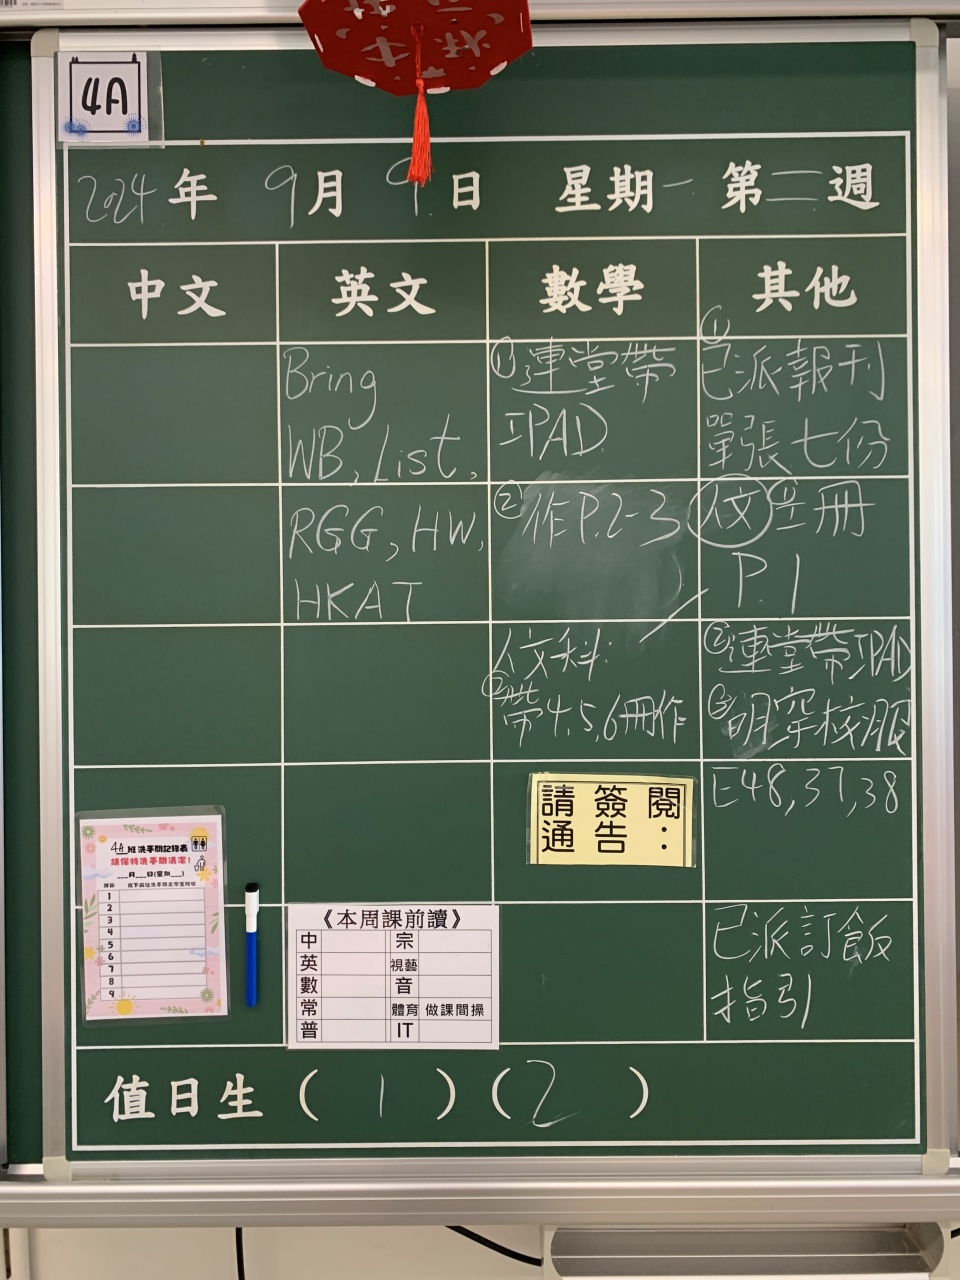 4A
2024年 9月 9日 星期一 第二週
中文 英文 數學 其他
Bring
WB, List,
RGG, HW,
HKAT
①連堂帶
IPAD
②作P.2-3
人文科:
②帶4,5,6冊作
①已派報刊
單張七份
P.1
②連堂帶IPAD
③明穿校服
E48,37,38
已派訂飯
指引
請簽閱
通告:
4A班洗手間記錄表
請保持洗手間清潔!
___月___日(星期___)
1
2
3
4
5
6
7
8
9
《本周課前讀》
中 宗
英 視藝
數 音
常 體育 做課間操
普 IT
值日生 ( 1 ) ( 2 )